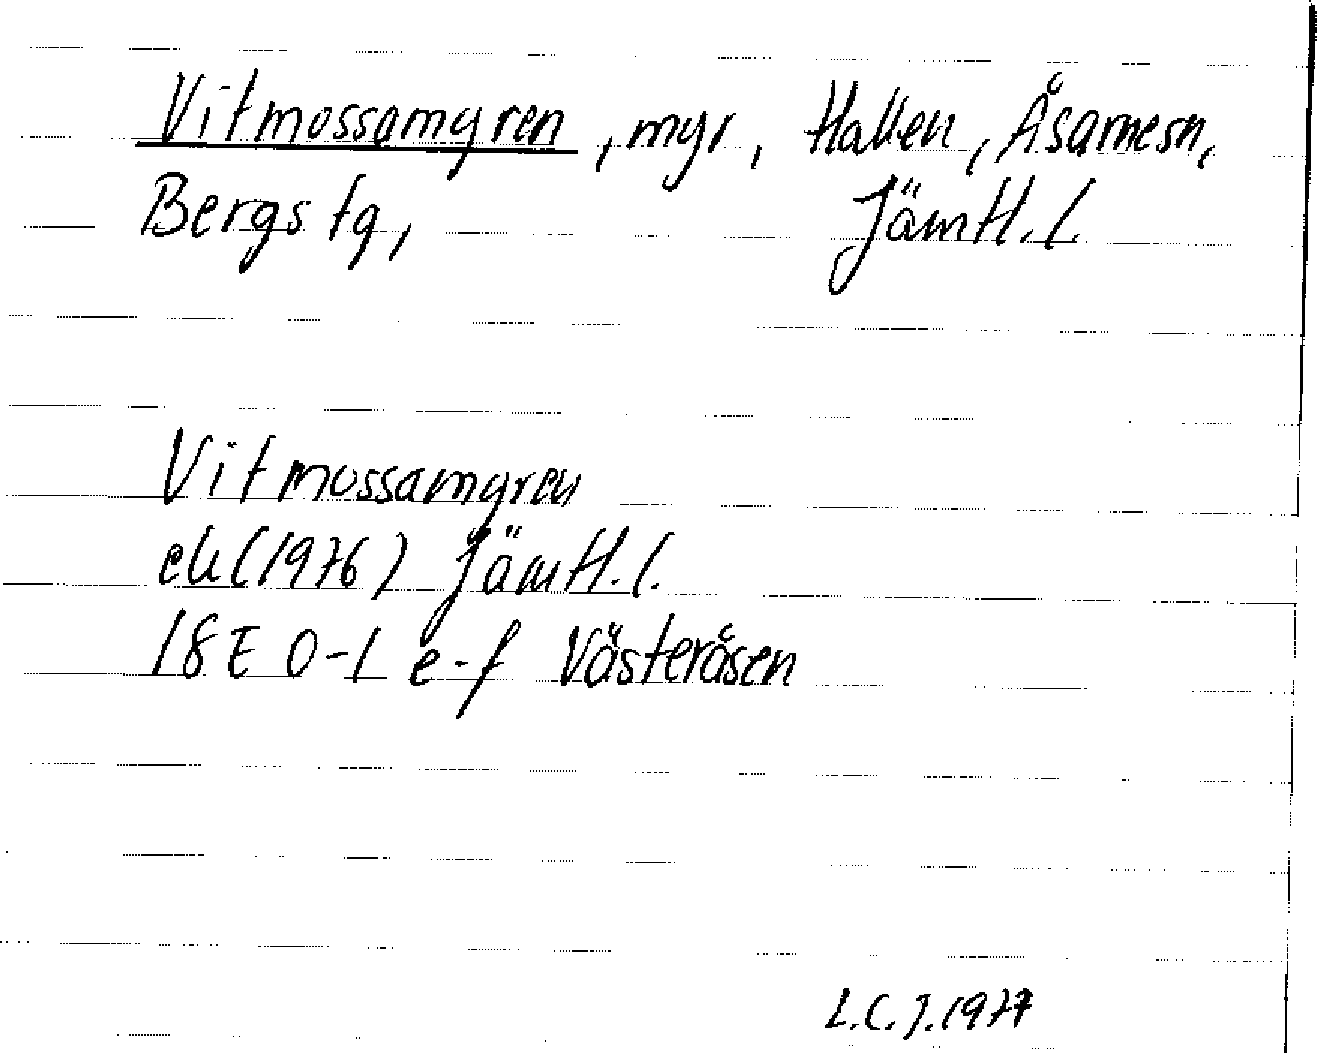 Vitmossamyren, myr, Hallen, Åsarnesn,
Bergs tg, Jämtl. l.
Vitmossamyren
ek (1976) Jämtl. l.
18E 0-1 e-f Västeråsen
L.C.J. 1977